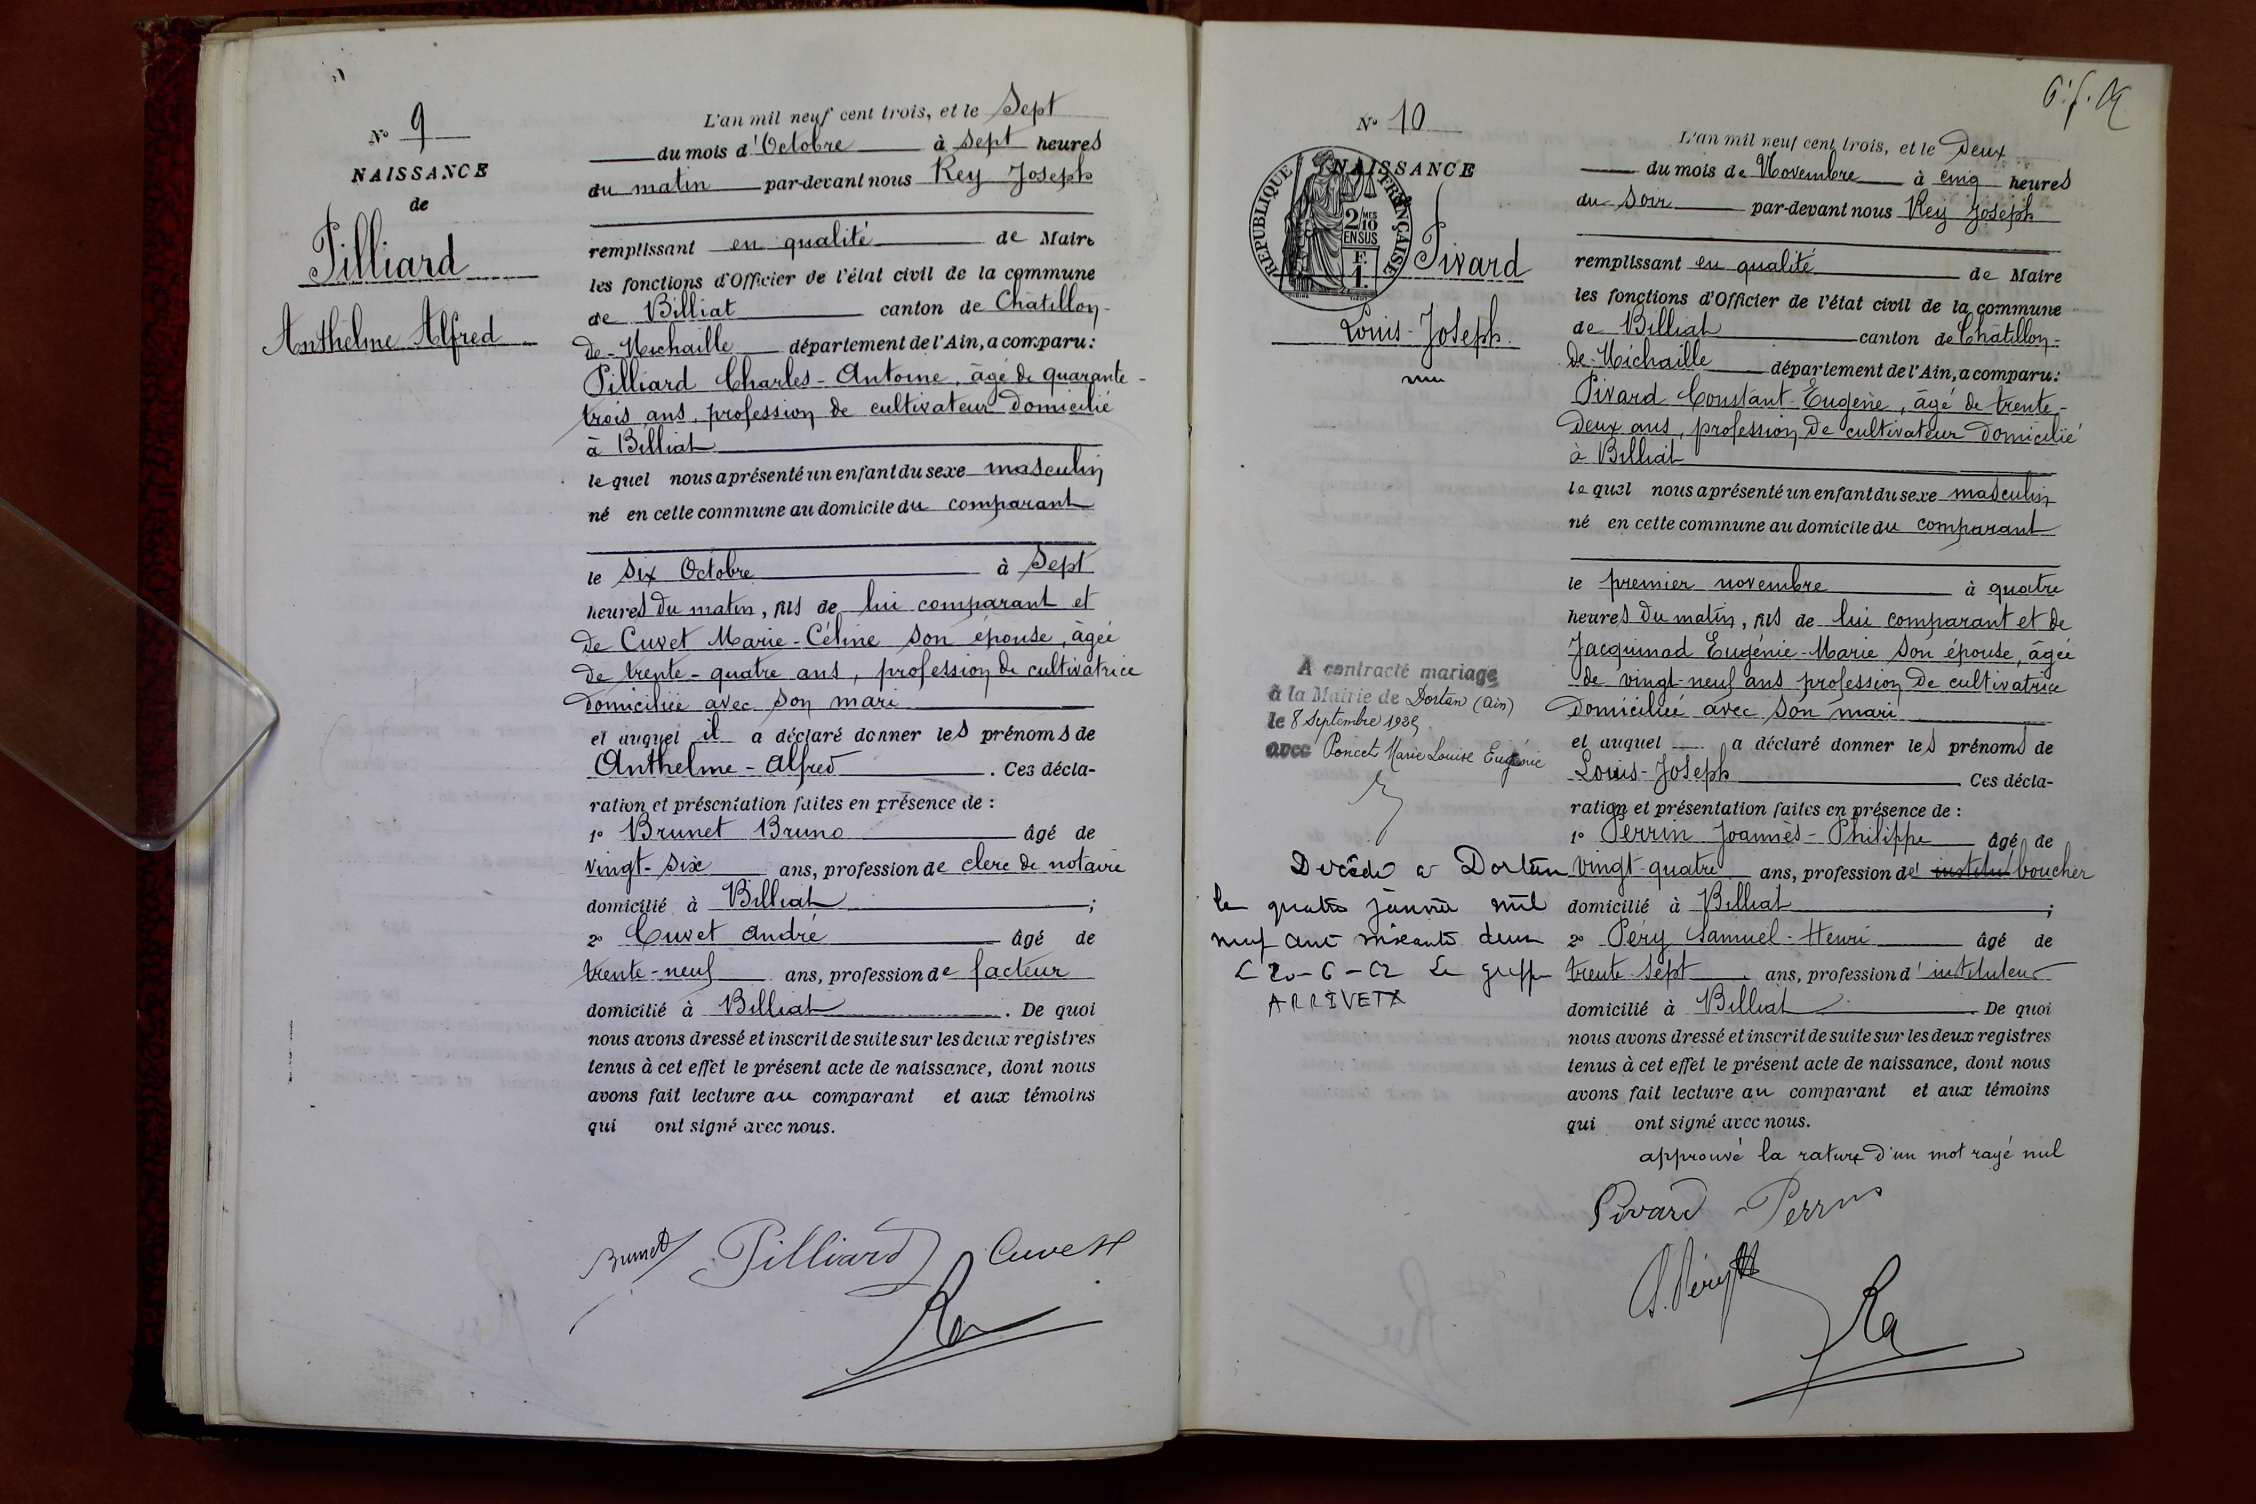 Nº 9
NAISSANCE
de
Pilliard
Anthelme Alfred
L'an mil neuf cent trois, et le Sept
du mois d'Octobre à Sept heures
du matin par-devant nous Rey Joseph
remplissant en qualité de Maire
les fonctions d'Officier de l'état civil de la commune
de Billiat canton de Châtillon-
de-Michaille département de l'Ain, a comparu:
Pilliard Charles-Antoine, âgé de quarante-
trois ans, profession de cultivateur domicilié
à Billiat
lequel nous a présenté un enfant du sexe masculin
né en cette commune au domicile du comparant
le six Octobre à Sept
heures du matin, fils de lui comparant et
de Cuvet Marie-Céline son épouse, âgée
de trente-quatre ans, profession de cultivatrice
domiciliée avec son mari
et auquel il a déclaré donner les prénoms de
Anthelme-Alfred. Ces décla-
ration et présentation faites en présence de :
1º Brunet Bruno âgé de
vingt-six ans, profession de clerc de notaire
domicilié à Billiat ;
2º Cuvet André âgé de
trente-neuf ans, profession de facteur
domicilié à Billiat. De quoi
nous avons dressé et inscrit de suite sur les deux registres
tenus à cet effet le présent acte de naissance, dont nous
avons fait lecture au comparant et aux témoins
qui ont signé avec nous.
Brunet Pilliard Cuvet
Rey
Nº 10
NAISSANCE
RÉPUBLIQUE FRANÇAISE
2/10 MES
EN SUS
F.
1.
Pivard
Louis-Joseph
L'an mil neuf cent trois, et le Deux
du mois de Novembre à cinq heures
du soir par-devant nous Rey Joseph
remplissant en qualité de Maire
les fonctions d'Officier de l'état civil de la commune
de Billiat canton de Châtillon-
de-Michaille département de l'Ain, a comparu:
Pivard Constant-Eugène, âgé de trente-
deux ans, profession de cultivateur domicilié
à Billiat
lequel nous a présenté un enfant du sexe masculin
né en cette commune au domicile du comparant
le premier novembre à quatre
heures du matin, fils de lui comparant et de
Jacquinod Eugénie-Marie son épouse, âgée
de vingt-neuf ans profession de cultivatrice
domiciliée avec son mari
et auquel a déclaré donner les prénoms de
Louis-Joseph Ces décla-
ration et présentation faites en présence de :
1º Perrin Joannès-Philippe âgé de
vingt-quatre ans, profession de institu boucher
domicilié à Billiat ;
2º Pery Samuel-Henri âgé de
trente sept ans, profession d'instituteur
domicilié à Billiat. De quoi
nous avons dressé et inscrit de suite sur les deux registres
tenus à cet effet le présent acte de naissance, dont nous
avons fait lecture au comparant et aux témoins
qui ont signé avec nous.
approuvé la rature d'un mot rayé nul
Pivard Perrin
S. Péry
Rey
A contracté mariage
à la Mairie de Dortan (Ain)
le 8 Septembre 1935
avec Poncet Marie Louise Eugénie
Décédé à Dortan
le quatre janvier mil
neuf cent soixante deux
Le 20-6-62 Le greffier
ARRIVETX